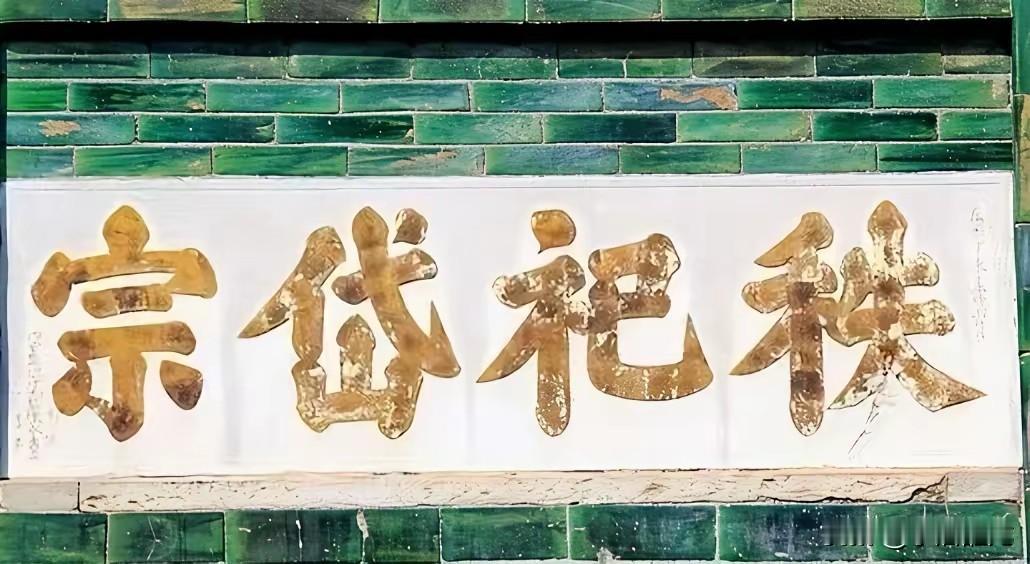 秩祀岱宗